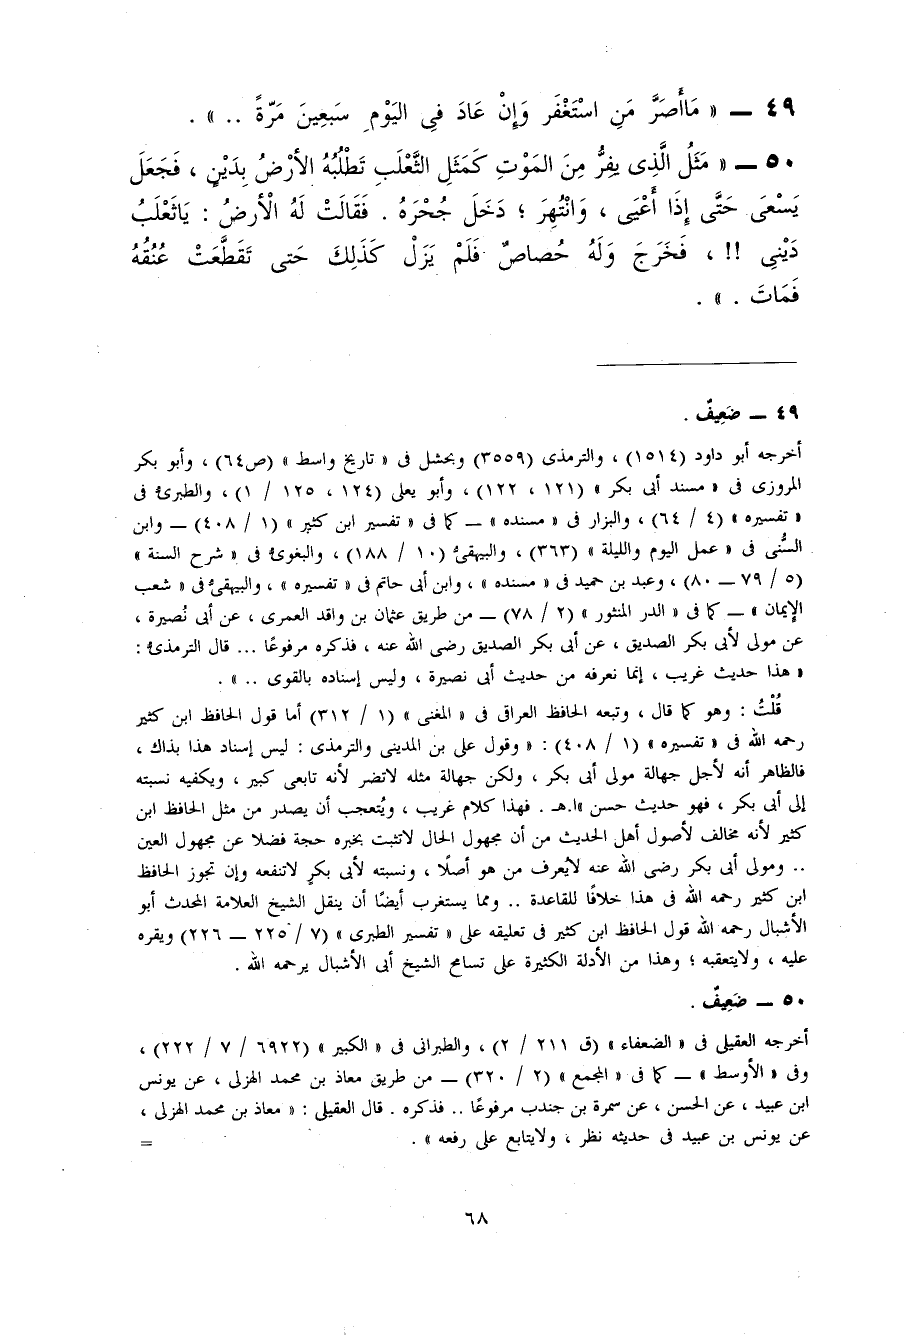 ٤٩ ــ « مَاأَصَرَّ مَنِ اسْتَغْفَر وَإِنْ عَادَ فِى اليَوْمِ سَبعِينَ مَرّةً .. » .
٥٠ ــ « مَثَلُ الَّذِى يفِرُّ مِنَ المَوْتِ كَمَثَلِ الثَّعْلَبِ تَطْلُبُهُ الأرْضُ بِدَيْنٍ ، فَجَعَل
يَسْعَى حَتَّى إِذَا أَعْيَى ، وَانْتُهِرَ ؛ دَخَلَ جُحْرَهُ . فَقَالَتْ لَهُ الْأَرضُ : يَاثَعْلَبُ
دَيْنِى !! ، فَخَرَجَ وَلَهُ حُصاصٌ فَلَمْ يَزَلْ كَذَلِكَ حَتى تَقَطَّعَتْ عُنُقُهُ
فَمَاتَ . » .
٤٩ ــ ضَعِيفٌ .
أخرجه أبو داود (١٥١٤) ، والترمذى (٣٥٥٩) وبحشل فى « تاريخ واسط » (ص٦٤) ، وأبو بكر
المروزى فى « مسند أبى بكر » (١٢١ ، ١٢٢) ، وأبو يعلى (١٢٤ ، ١٢٥ / ١) ، والطبرىُّ فى
« تفسيره » (٤ / ٦٤) ، والبزار فى « مسنده » ــ كما فى « تفسير ابن كثير » (١ / ٤٠٨) ــ وابن
السُّنى فى « عمل اليوم والليلة » (٣٦٣) ، والبيهقىُّ (١٠ / ١٨٨) ، والبغوىُّ فى « شرح السنة »
(٥ / ٧٩ ــ ٨٠) ، وعبد بن حميد فى « مسنده » ، وابن أبى حاتم فى « تفسيره » ، والبيهقىُّ فى « شعب
الإيمان » ــ كما فى « الدر المنثور » (٢ / ٧٨) ــ من طريق عثمان بن واقد العمرى ، عن أبى نُصيرة ،
عن مولى لأبى بكر الصديق ، عن أبى بكر الصديق رضى الله عنه ، فذكره مرفوعًا ... قال الترمذىُّ :
« هذا حديث غريب ، إنما نعرفه من حديث أبى نصيرة ، وليس إسناده بالقوى .. » .
قُلْتُ : وهو كما قال ، وتبعه الحافظ العراقى فى « المغنى » (١ / ٣١٢) أما قول الحافظ ابن كثير
رحمه الله فى « تفسيره » (١ / ٤٠٨) : « وقول على بن المدينى والترمذى : ليس إسناد هذا بذاك ،
فالظاهر أنه لأجل جهالة مولى أبى بكر ، ولكن جهالة مثله لاتضر لأنه تابعى كبير ، ويكفيه نسبته
إلى أبى بكر ، فهو حديث حسن »ا.هـ. فهذا كلام غريب ، ويُتعجب أن يصدر من مثل الحافظ ابن
كثير لأنه مخالف لأصول أهل الحديث من أن مجهول الحال لاتثبت بخبره حجة فضلا عن مجهول العين
.. ومولى أبى بكر رضى الله عنه لايُعرف من هو أصلًا ، ونسبته لأبى بكرٍ لاتنفعه وإن تجوز الحافظ
ابن كثير رحمه الله فى هذا خلافًا للقاعدة .. ومما يستغرب أيضًا أن ينقل الشيخ العلامة المحدث أبو
الأشبال رحمه الله قول الحافظ ابن كثير فى تعليقه على « تفسير الطبرى » (٧ / ٢٢٥ ــ ٢٢٦) ويقره
عليه ، ولايتعقبه ؛ وهذا من الأدلة الكثيرة على تسامح الشيخ أبى الأشبال يرحمه الله .
٥٠ ــ ضَعِيفٌ .
أخرجه العقيلى فى « الضعفاء » (ق ٢١١ / ٢) ، والطبرانى فى « الكبير » (٦٩٢٢ / ٧ / ٢٢٢) ،
وفى « الأوسط » ــ كما فى « المجمع » (٢ / ٣٢٠) ــ من طريق معاذ بن محمد الهزلى ، عن يونس
ابن عبيد ، عن الحسن ، عن سمرة بن جندب مرفوعًا .. فذكره . قال العقيلى : « معاذ بن محمد الهزلى ،
عن يونس بن عبيد فى حديثه نظر ، ولايتابع على رفعه » . =
٦٨